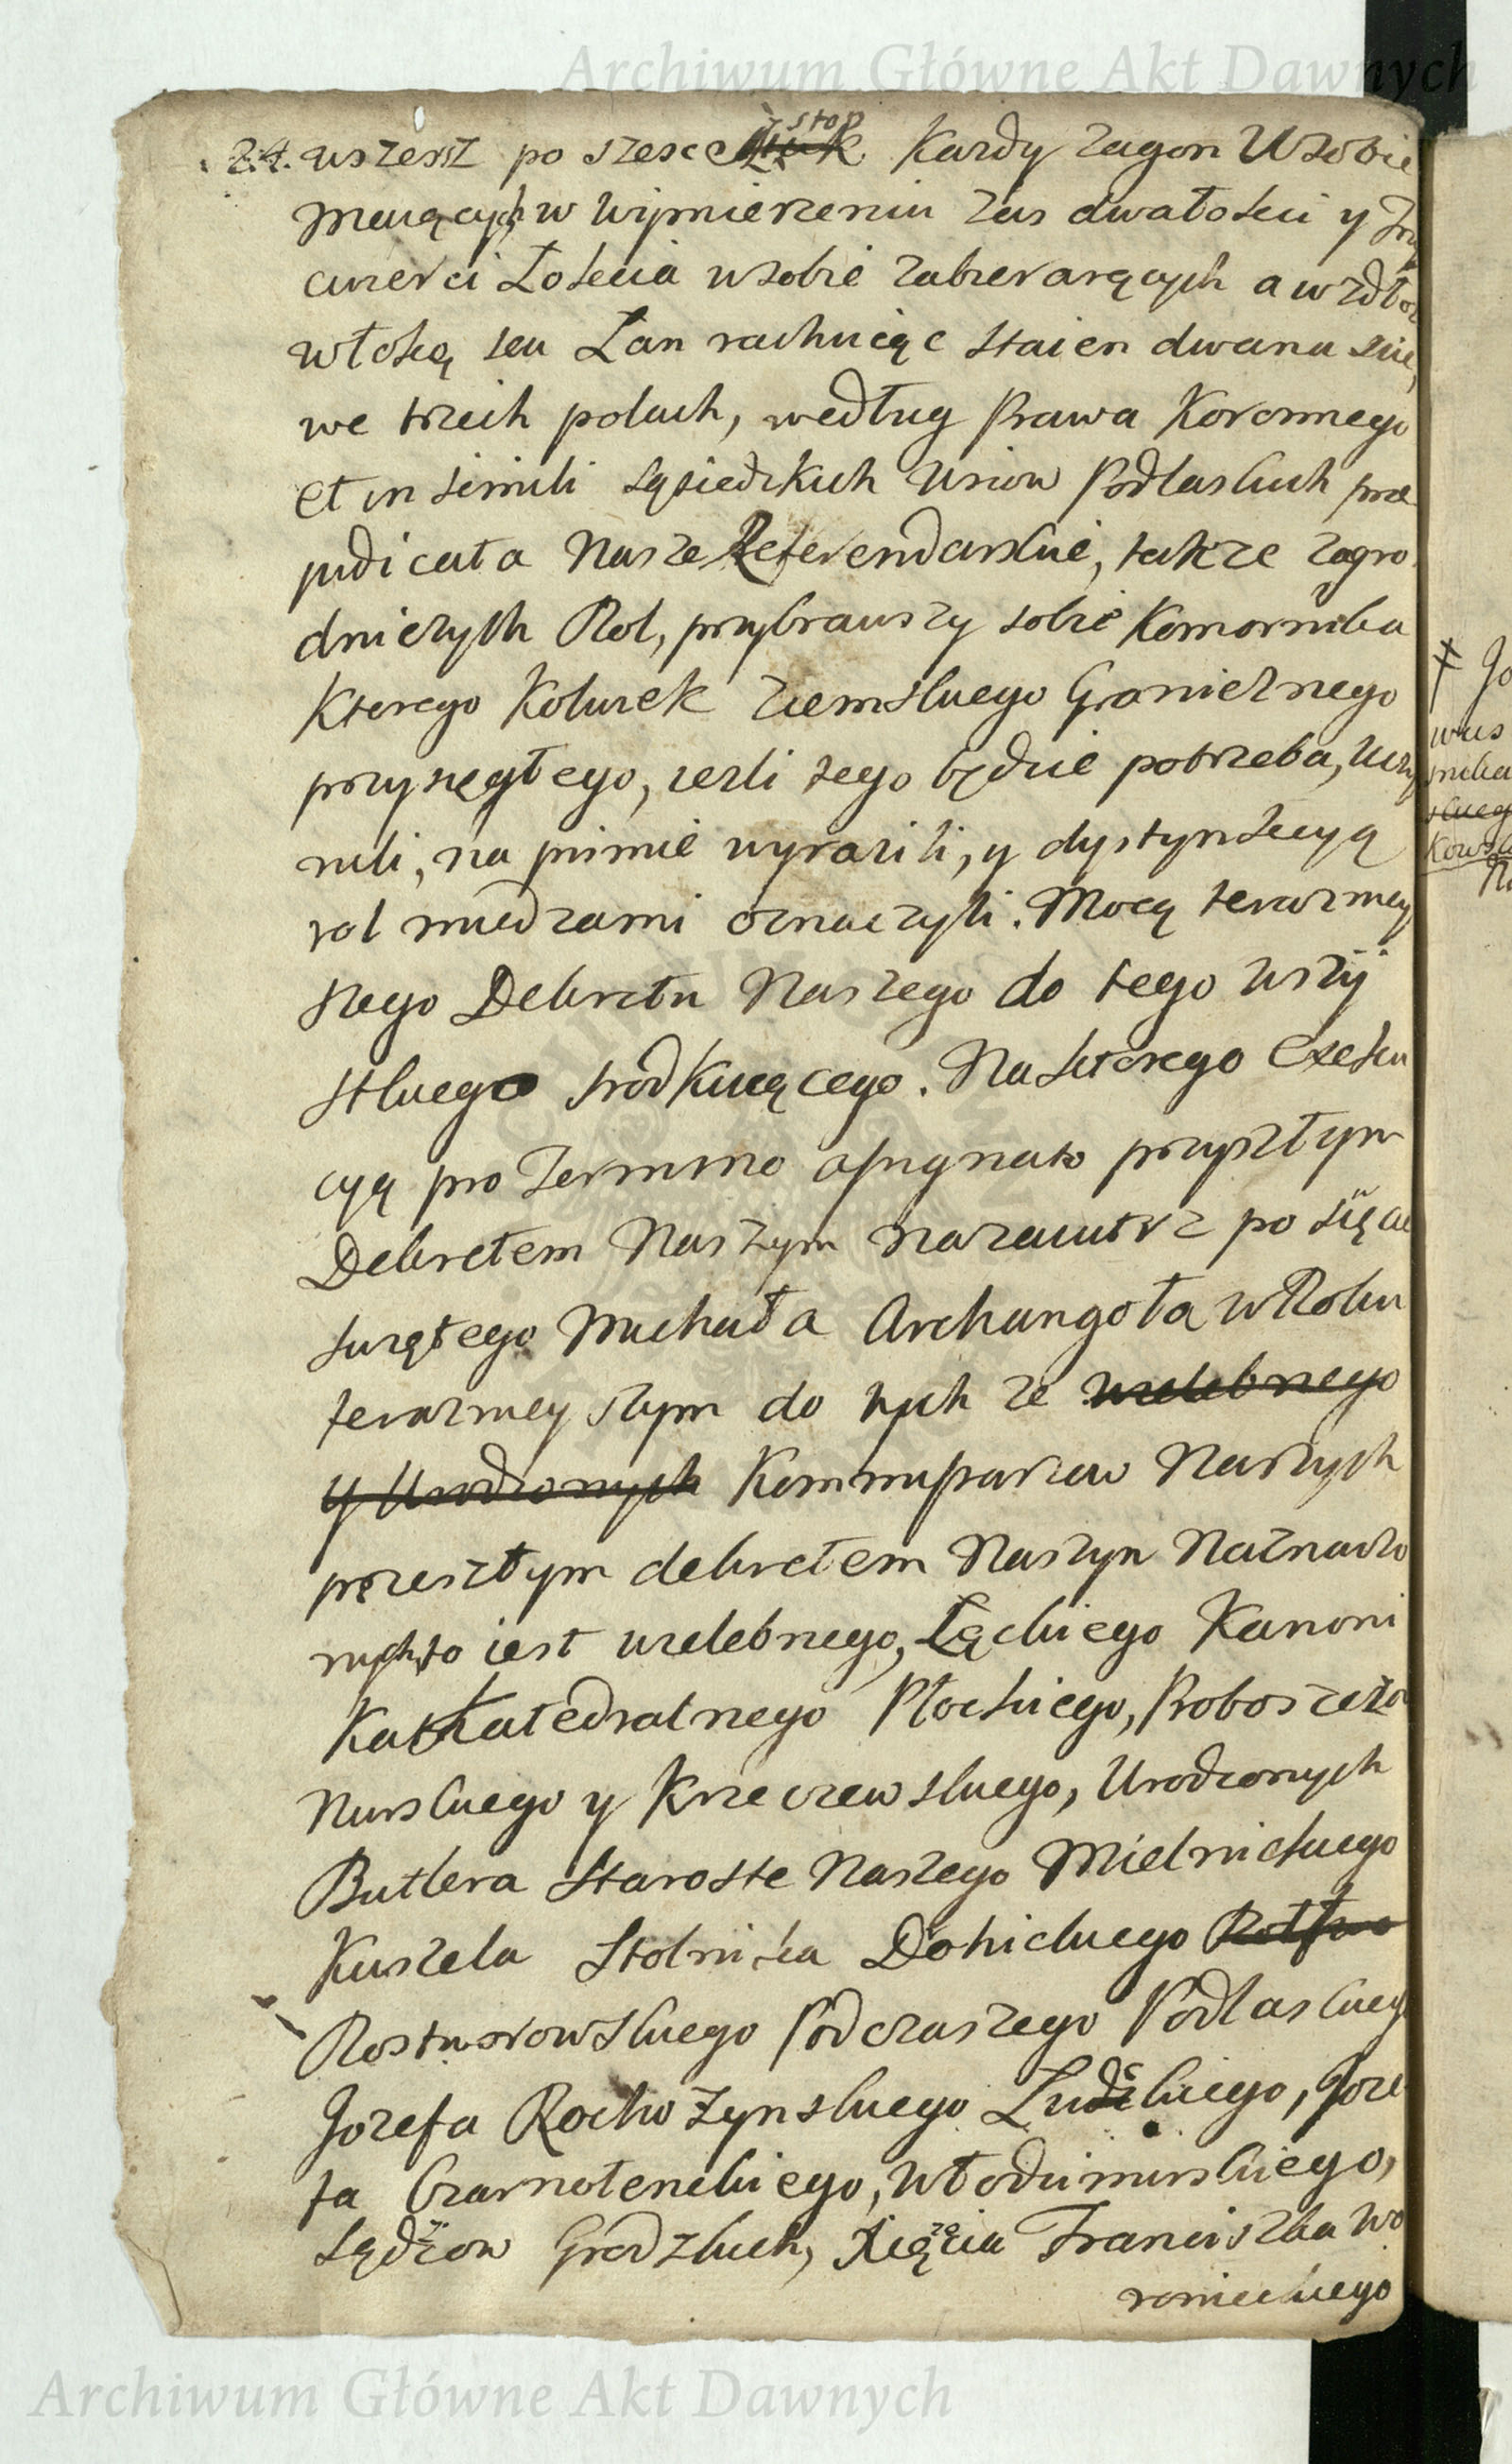 Archiwum Główne Akt Dawnych
24. wszersz po szesc stop Kazdy zagon w sobie
maiących, w wymierzeniu zas dwa łoscii y trzy
cwierci Łoscia w sobie zabieraiących a wzdłoz
włoką seu Łan rachuiąc staien dwanascie,
we trzech polach, według Prawa Koronnego
et in simili sąsiedzkich Wsiow Podlaskich præ
judicata Nasze Referendarskie, takze zagro
dniczych Rol, przybrawszy sobie Komornika
Ktorego Kolwiek Ziemskiego Granicznego
przysięgłego, iezli tego będzie potrzeba, uczy
nili, na pismie wyrazili, y dystynkcyą
rol miedzami oznaczyli. Mocą terazniey
szego Dekretu Naszego do tego wszy
stkiego srodkuiącego. Na ktorego Exeku
cyą pro Termino assignato przyszłym
Dekretem Naszym nazaiutrz po Więcie
swiętego Michała Archangoła w Roku
terazniey szym do tych ze wielebnego
y Urodzonych Kommissarzow Naszych
przeszłym dekretem Naszym Naznaczo
nych, to iest wielebnego, Łąckiego Kanoni
Ka Katedralnego Płockiego, Proboszcza
Nurskiego y Krzeczewskiego, Urodzonych
Butlera Staroste Naszego Mielnickiego
Kuszela Stolnika Dohickiego
Rostworowskiego Podczaszego Podlaskiego
Jozefa Rochozynskiego Łudzkiego, Joze
fa Czarnołenckiego, Włodzimirskiego,
Sędziow Grodzkich, Xięcia Franciszka Wo
ronieckiego
Archiwum Główne Akt Dawnych